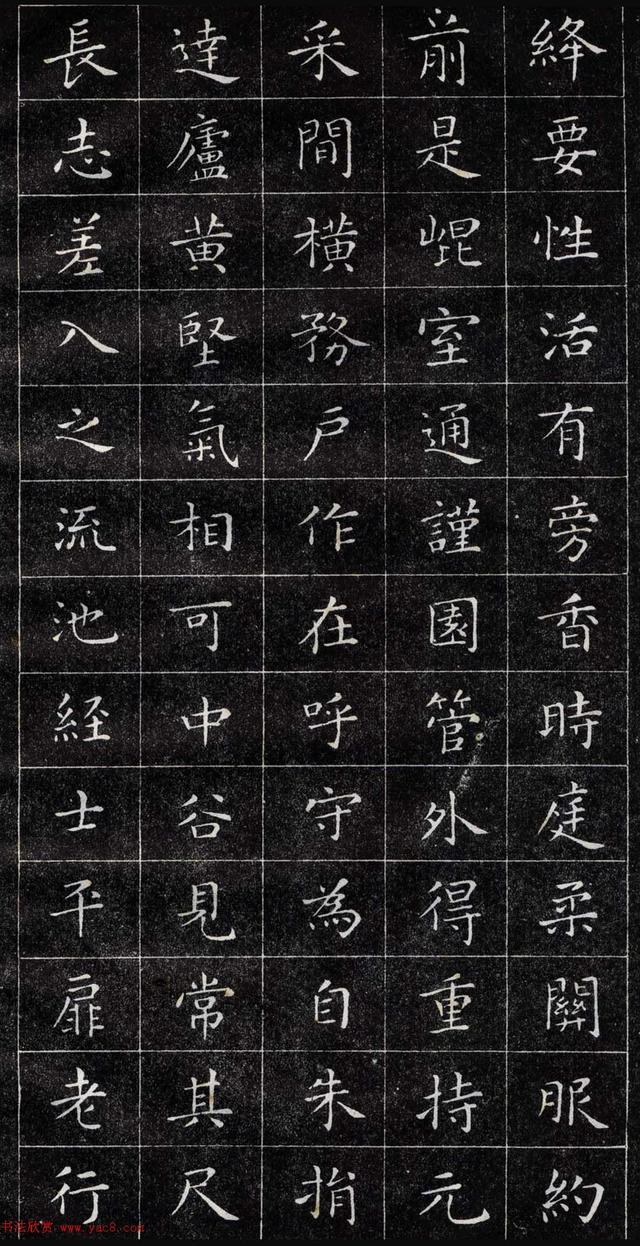 絳要性活有旁香時庭柔關服約
前是崐室通謹園管外得重持元
采間橫務戶作在呼守為自朱
達廬黃堅氣相可中谷見常其尺
長志差入之流池經士平扉老行
书法欣赏 www.yac8.com